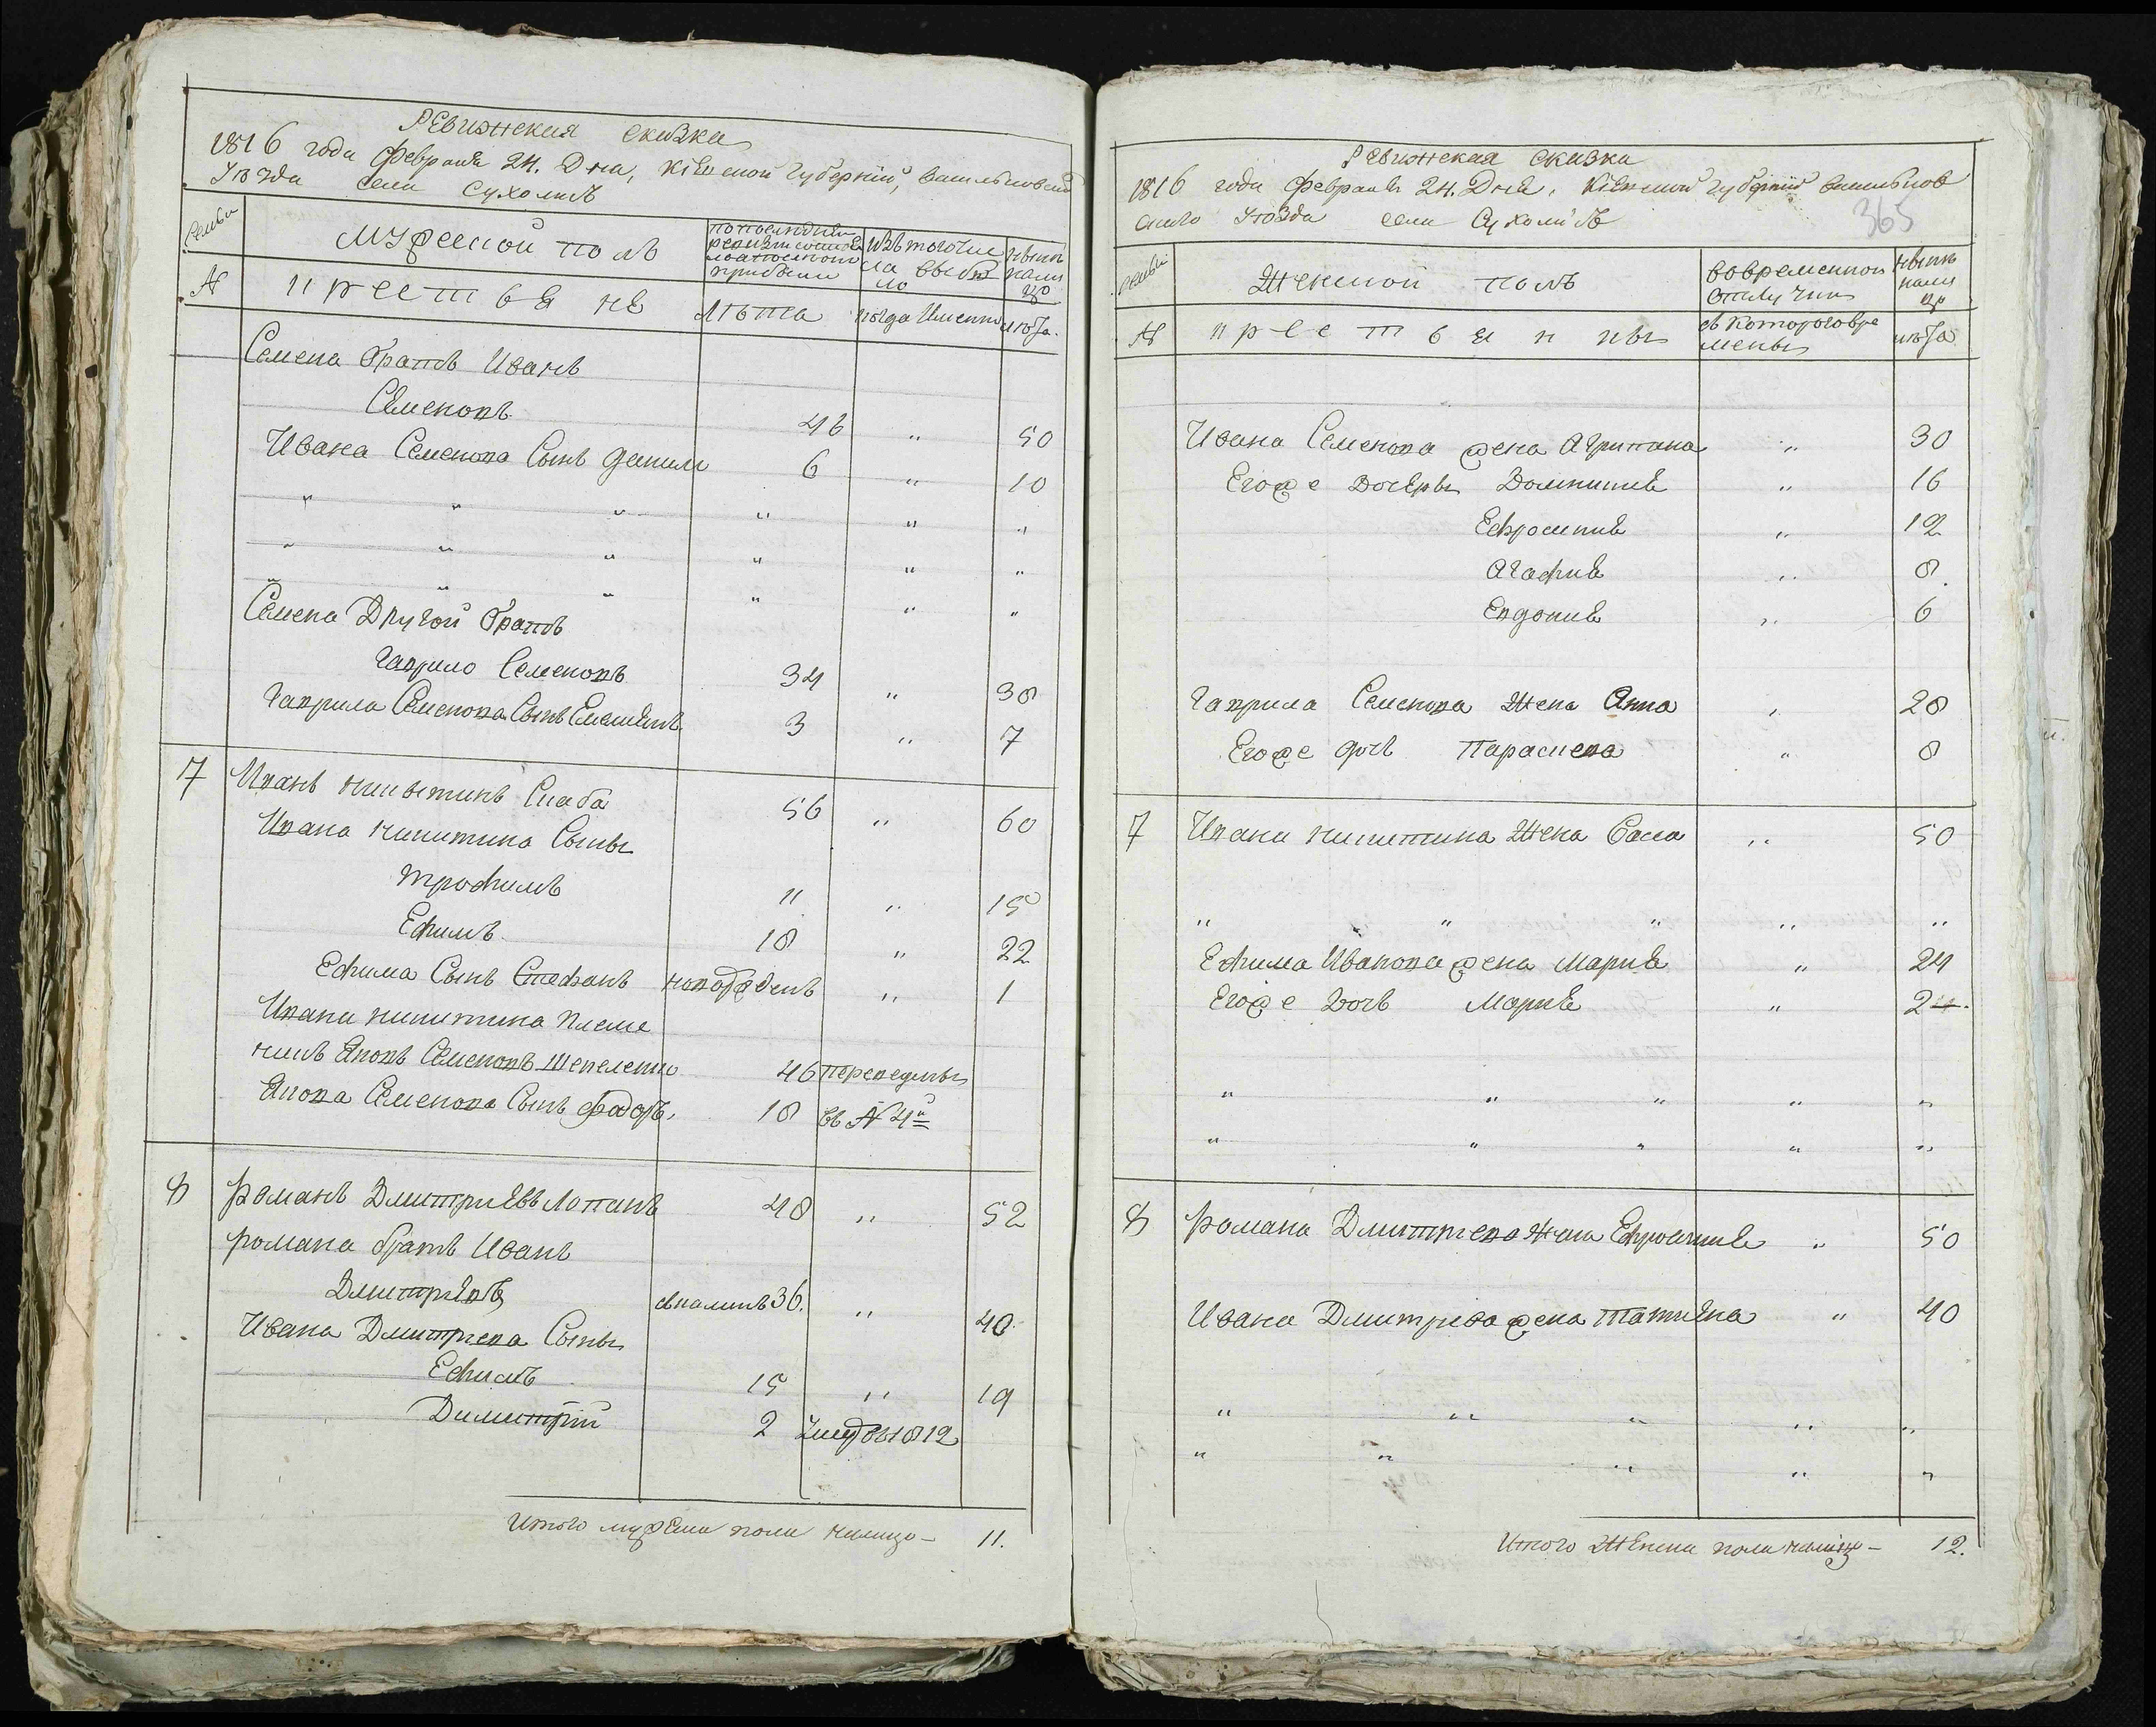 Ревижская сказка
1816 года Февраля 24. Дня, Кіевской Губерніи, Васильковскаго
Уѣзда села Сухолисъ
Семьи
Мужеской полъ
По последней ревизіи состояло и после того прибыло
Изъ того числа выбыло
Нынѣ налицо
№
крестьяне
Лѣта
когда Именно
лѣта.
Семена братъ Иванъ
Семеновъ 46 " 50
Ивана Семенова Сынъ Данило 6 " 10
" " " " " "
" " " " " "
" " " " " "
Семена Другой братъ
Гаврило Семеновъ 34 " 38
Гаврила Семенова Сынъ Климентъ 3 " 7
7 Иванъ Никитинъ Слаба 56 " 60
Ивана Никитина Сыны
Трофимъ 11 " 15
Ефимъ 18 " 22
Ефима Сынъ Стефанъ новорожденъ " 1
Ивана Никитина племе
никъ Яковъ Семеновъ Шепеленко 46 переведены
Якова Семенова Сынъ Фадоръ. 18 въ № 4й
8 Романъ Дмитріевъ Лопанъ 48 " 52
Романа братъ Иванъ
Дмитріевъ 36. " 40
Ивана Дмитриева Сыны
Ефимъ 15 " 19
Димитрій 2 Умер въ 1812
Итого мужеска пола налицо – 11.
Ревижская сказка
1816 года Февраля 24. Дня, Кіевской губерніи Васильков
скаго Уѣзда села Сухолисъ
365
Семьи
Женской полъ
Во временной отлучки
Нынѣ налицо
№
крестьянки
съ которого вре
мены
лѣта
Ивана Семенова жена Агрипина " 30
Егоже Дочеры Домникия " 16
Ефросиния " 12
Агафия " 8.
Евдокия " 6
Гаврила Семенова Жена Анна " 28
Егоже дочь Параскева " 8
7 Ивана Никитина Жена Васса " 50
" " " " "
Ефима Иванова жена Мария " 24
Егоже Дочь Мария " 2
" " " " "
" " " " "
8 Романа Дмитриева Жена Ефросиния " 50
Ивана Дмитриева жена Татияна " 40
" " " " "
" " " " "
Итого Женска пола налицо – 12.